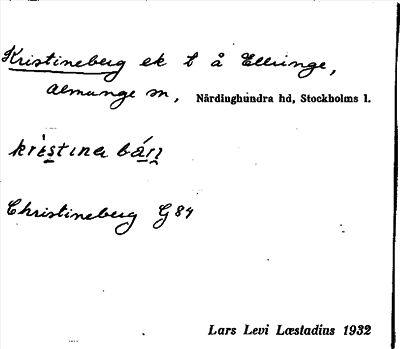 Kristineberg ek t å Ellringe,
Almunge sn, Närdinghundra hd, Stockholms l.
krìstina bárj
Christineberg G 84
Lars Levi Læstadius 1932